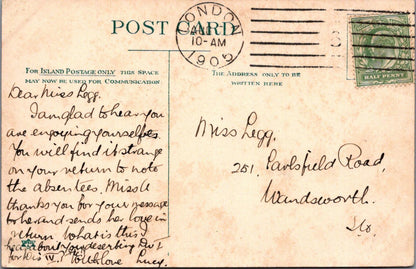 POST CARD
LONDON
10-AM
1905
HALF PENNY
FOR INLAND POSTAGE ONLY THIS SPACE
MAY NOW BE USED FOR COMMUNICATION
THE ADDRESS ONLY TO BE
WRITTEN HERE
Dear Miss Legg.
I am glad to hear you
are enjoying yourselfes.
You will find it strange
on your return to note
the absentees. Miss U
thanks you for your message
to her and sends her love in
return What is this I
hear about you deserting Div I
for Div IV. With love Lucy.
Miss Legg.
251. Earlsfield Road,
Wandsworth.